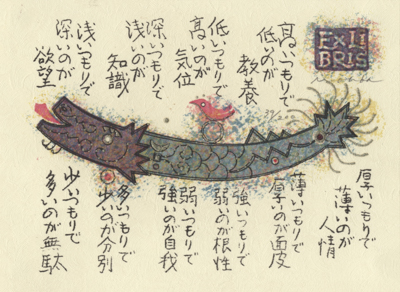 EX LI
BRIS
高いつもりで
低いのが
教養
低いつもりで
高いのが
気位
深いつもりで
浅いのが
知識
浅いつもりで
深いのが
欲望
厚いつもりで
薄いのが
人情
薄いつもりで
厚いのが面皮
強いつもりで
弱いのが根性
弱いつもりで
強いのが自我
多いつもりで
少いのが分別
少いつもりで
多いのが無駄